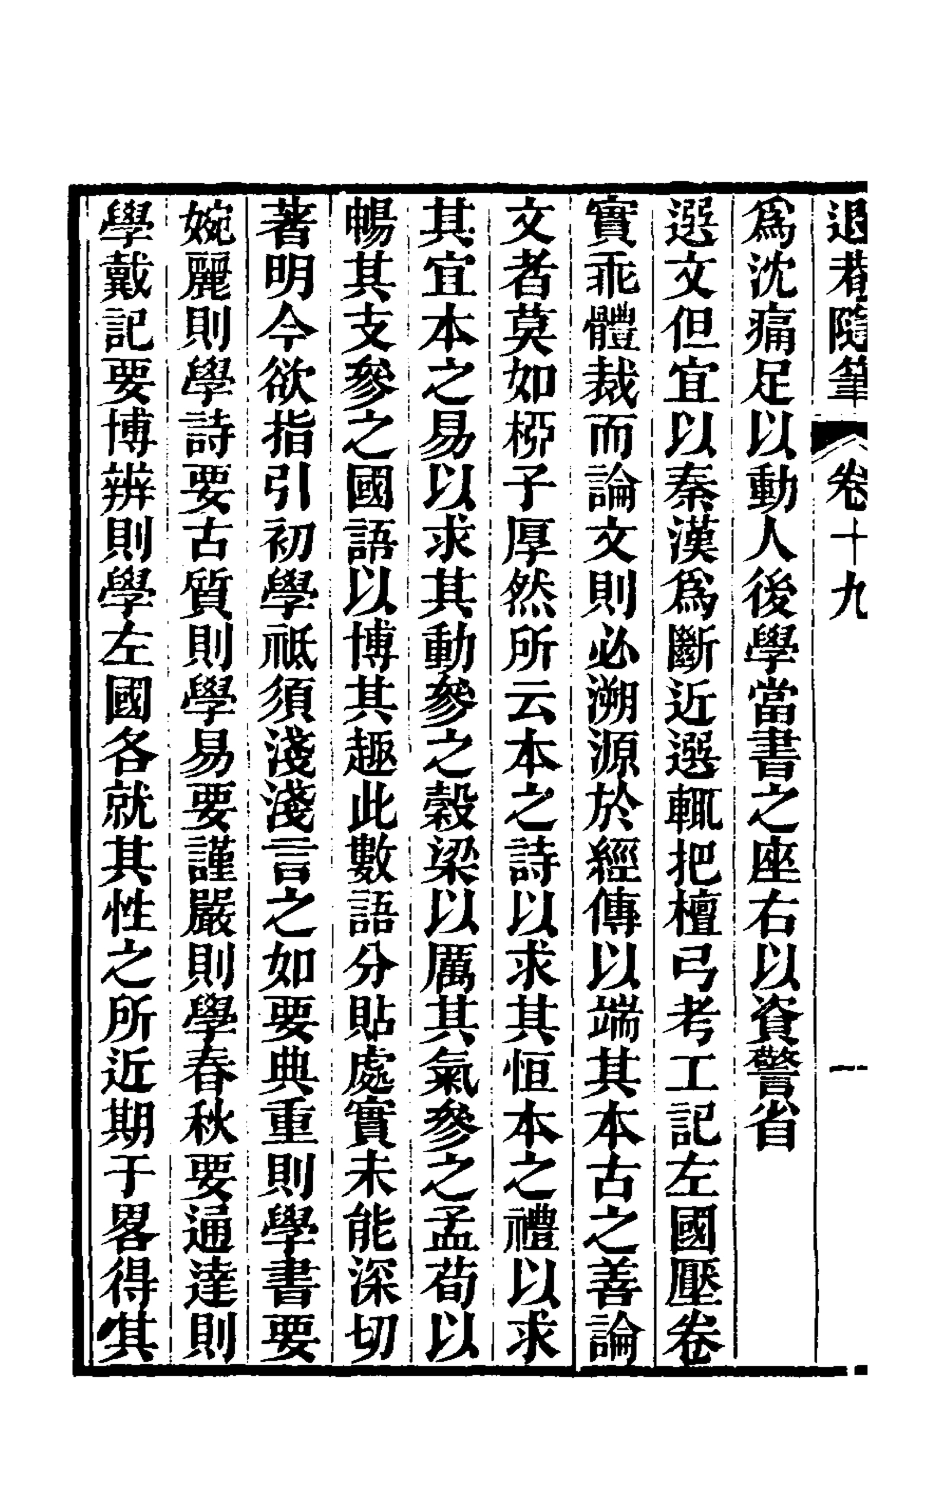 退菴隨筆 卷十九 一
爲沈痛足以動人後學當書之座右以資警省
選文但宜以秦漢爲斷近選輒把檀弓考工記左國壓卷
實乖體裁而論文則必溯源於經傳以端其本古之善論
文者莫如桺子厚然所云本之詩以求其恒本之禮以求
其宜本之易以求其動參之穀梁以厲其氣參之孟荀以
暢其支參之國語以博其趣此數語分貼處實未能深切
著明今欲指引初學祗須淺淺言之如要典重則學書要
婉麗則學詩要古質則學易要謹嚴則學春秋要通達則
學戴記要博辨則學左國各就其性之所近期于畧得其